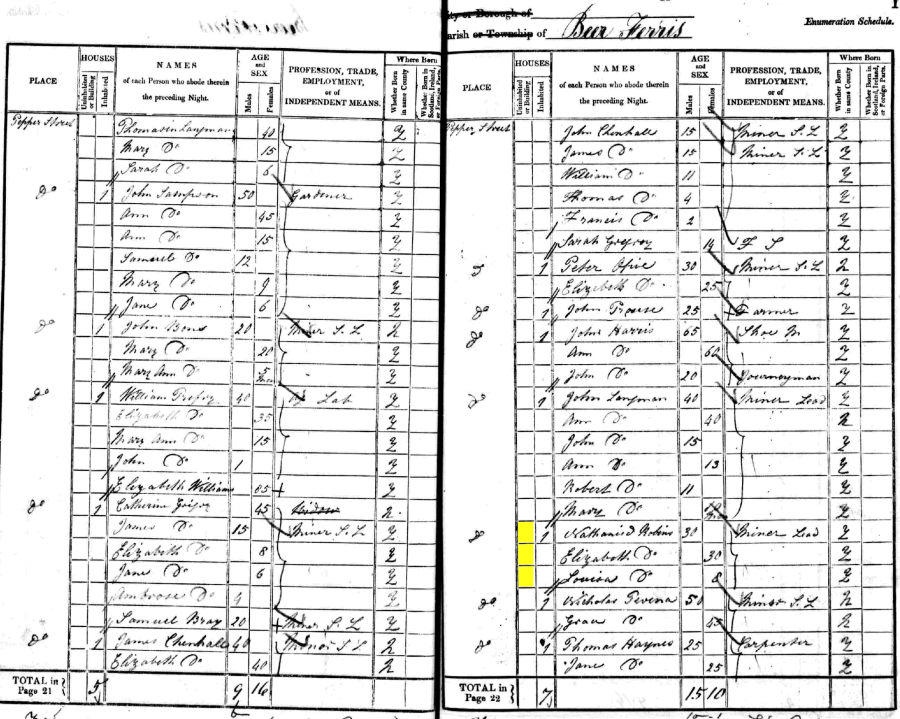 City or Borough of
Parish or Township of Beer Ferris
Enumeration Schedule.
PLACE
HOUSES
Uninhabited or Building
Inhabited
NAMES
of each Person who abode therein
the preceding Night.
AGE and SEX
Males
Females
PROFESSION, TRADE,
EMPLOYMENT,
or of
INDEPENDENT MEANS.
Where Born
Whether Born in same County
Whether Born in Scotland, Ireland, or Foreign Parts.
Pepper Street Thomasin Langman 40 Y
Mary Do 15 Y
Sarah Do 6 Y
Do 1 John Sampson 50 Gardener Y
Ann Do 45 Y
Ann Do 15 Y
Samuel Do 12 Y
Mary Do 9 Y
Jane Do 6 Y
Do 1 John 20 Miner S. L N
Mary Do 20 Y
Mary Ann Do 5 Y
Do 1 William 40 Ag Lab Y
Elizabeth Do 35 Y
Mary Ann Do 15 Y
John Do 1 Y
Elizabeth Williams 85 Y
Do 1 Catherine 45 N
James Do 15 Miner S. L Y
Elizabeth Do 8 Y
Jane Do 6 Y
Ambrose Do 4 Y
Samuel Bray 20 Miner S. L Y
Do 1 James Chenhall 40 Miner S L N
Elizabeth Do 40 N
TOTAL in Page 21 5 9 16
PLACE
HOUSES
Uninhabited or Building
Inhabited
NAMES
of each Person who abode therein
the preceding Night.
AGE and SEX
Males
Females
PROFESSION, TRADE,
EMPLOYMENT,
or of
INDEPENDENT MEANS.
Where Born
Whether Born in same County
Whether Born in Scotland, Ireland, or Foreign Parts.
Pepper Street John Chenhall 15 Miner S. L Y
James Do 15 Miner S. L Y
William Do 11 Y
Thomas Do 4 Y
Francis Do 2 Y
Sarah 14 F S Y
Do 1 Peter 30 Miner S. L N
Elizabeth Do 25 Y
Do 1 John Prouse 25 Farmer Y
Do 1 John Harris 65 Shoe M Y
Ann Do 60 Y
John Do 20 Journeyman Y
Do 1 John Langman 40 Miner Lead Y
Ann Do 40 N
John Do 15 Y
Ann Do 13 Y
Robert Do 11 Y
Mary Do Y
Do 1 Nathaniel Robins 30 Miner Lead Y
Elizabeth Do 30 Y
Louisa Do 8 Y
Do 1 Nicholas 50 Miner S. L N
Grace Do 45 N
Do 1 Thomas Haynes 25 Carpenter Y
Jane Do 25 Y
TOTAL in Page 22 7 15 10